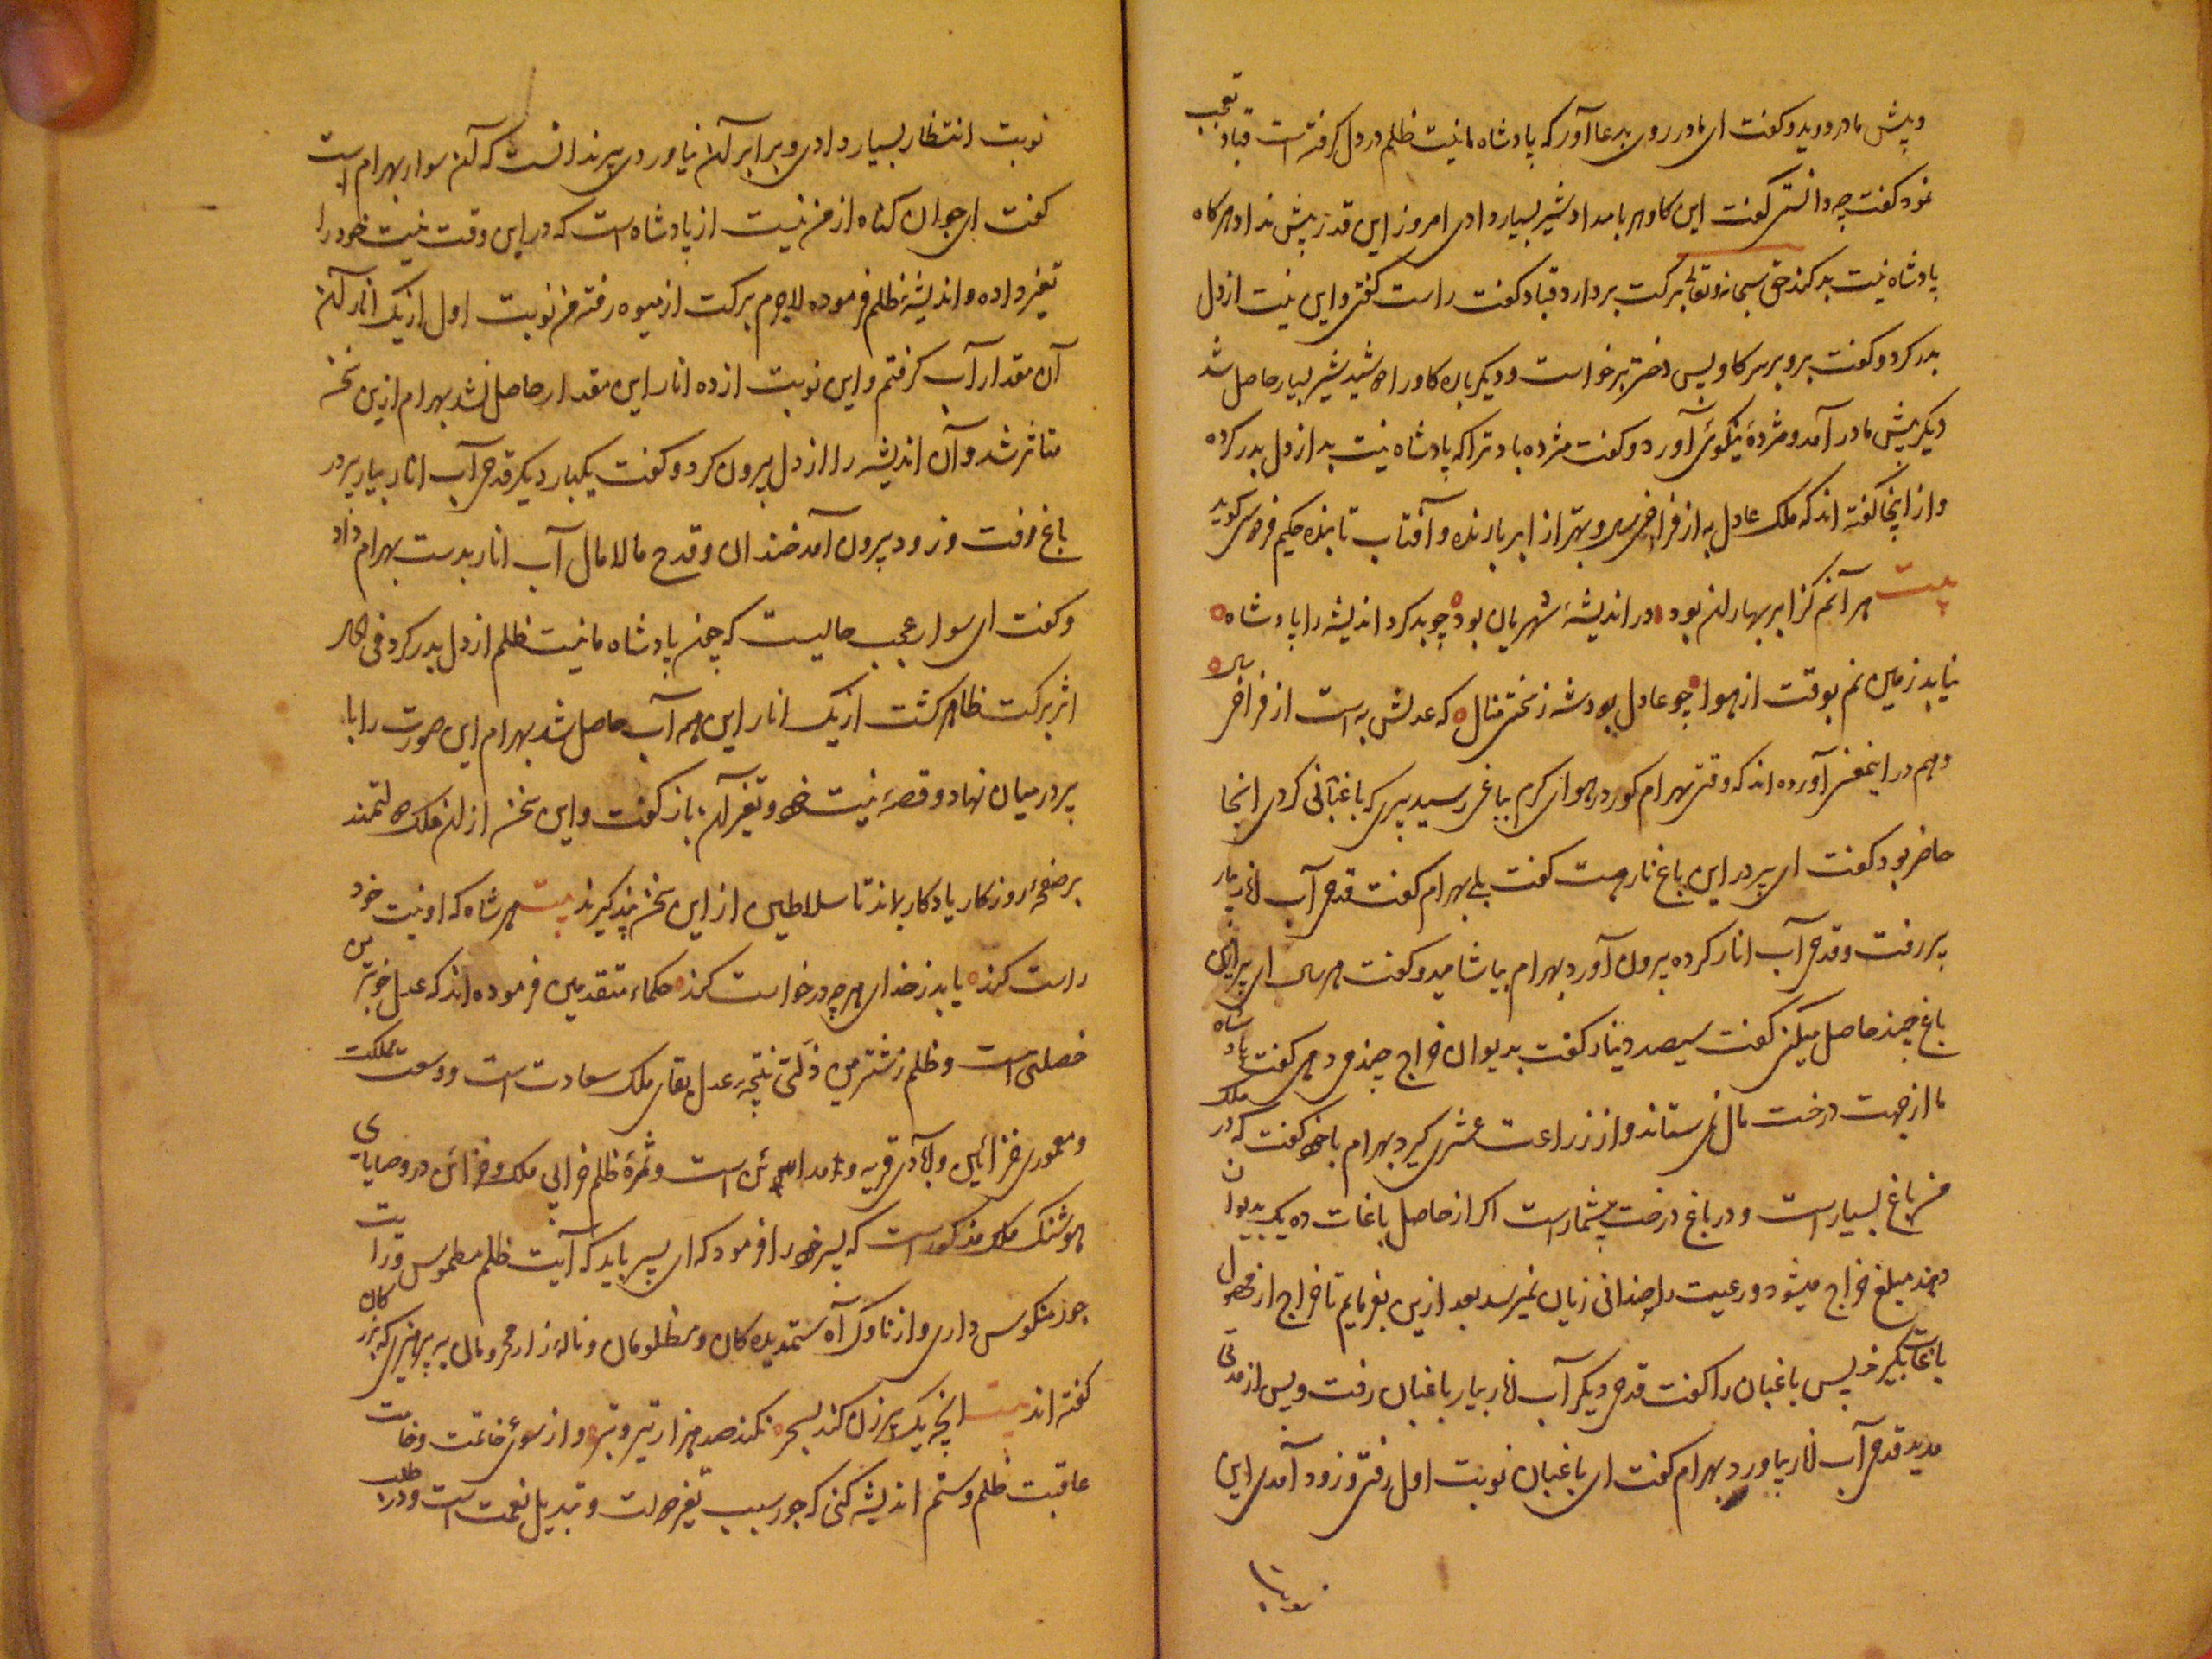 و پیش مادر دوید و گفت ای مادر روی بدعا آور که پادشاه ما نیت ظلم در دل گرفته است قباد تعجب
نمود گفت چه دانستی گفت این گاو هر بامداد شیر بسیار دادی امروز این قدر پیش نداد هرگاه
پادشاه نیت بد کند حق سبحانه و تعالی برکت بردارد قباد گفت راست گفتی و این نیت از دل
بدر کرد و گفت برو بر سر گاو پس دختر برخواست و دیگر باره گاو را دوشید شیر بسیار حاصل شد
دیگر پیش مادر آمد و مژدهٔ نیکوئی آورد و گفت مژده باد ترا که پادشاه نیت بد از دل بدر کرده
و از اینجا گفته اند که ملک عادل به از فراخی سال و بهتر از ابر بارنده و آفتاب تابنده حکیم فردوسی گوید
بیت هر آنم کز ابر بهاران بود در اندیشهٔ شهریاران بود چو بد کرد اندیشه را پادشاه
نیابد زمین نم بوقت از هوا چو عادل بود شه ز سختی منال که عدلش به است از فراخی سال
و هم در اینمعنی آورده اند که وقتی بهرام گور در هوای گرم بباغی رسید پیری که باغبانی کردی انجا
حاضر بود گفت ای پیر در این باغ نار هست گفت بلی بهرام گفت قدحی آب انار بیار
پیر رفت و قدحی آب انار کرده بیرون آورد بهرام بیاشامید و گفت هر سال ای پیر ازین
باغ چند حاصل میکنی گفت سیصد دینار گفت بدیوان خراج چند می دهی گفت پادشاه
ما از جهت درخت مال نمی ستاند و از زراعت عشری گیرد بهرام با خود گفت که در ملک
من باغ بسیار است و در باغ درخت بیشمار است اگر از حاصل باغات ده یک بدیوان
دهند مبلغ خراج میشود و رعیت را چندانی زیان نمیرسد بعد ازین بفرمایم تا خراج از محصول
باغات بگیرند پس باغبان را گفت قدحی دیگر آب انار بیار باغبان رفت و پس از مدتی
مدید قدحی آب انار بیاورد بهرام گفت ای باغبان نوبت اول رفتی و زود آمدی این
نوبت
نوبت انتظار بسیار دادی و برابر آن نیاوردی پیر ندانست که آن سوار بهرام است
گفت ای جوان گناه از من نیست از پادشاه است که در این وقت نیت خود را
تغیر داده و اندیشهٔ ظلم فرموده لاجرم برکت از میوه رفته من نوبت اول از یک انار آن
آن مقدار آب گرفتم و این نوبت از ده انار این مقدار حاصل نشد بهرام ازین سخن
متاثر شد و آن اندیشه را از دل بیرون کرد و گفت یکبار دیگر قدحی آب انار بیار پیر در
باغ رفت و زود بیرون آمد خندان و قدح مالامال آب انار بدست بهرام داد
و گفت ای سوار عجب حالیست که چون پادشاه ما نیت ظلم از دل بدر کرد فی الحال
اثر برکت ظاهر گشت از یک انار این همه آب حاصل شد بهرام این صورت را با
پیر در میان نهاد و قصهٔ نیت خود و تغیر آن باز گفت و این سخن از ان ملک دولتمند
بر صفحهٔ روزگار یادگار بماند تا سلاطین از این سخن پند گیرند بیت هر شاه که او نیت خود
راست کند یابد ز خدای هر چه درخواست کند حکماء متقدمین فرموده اند که عدل خوبترین
خصلتی است و ظلم زشت ترین ذلتی نتیجهٔ عدل بقای ملک سعادت است و وسعت مملکت
و معموری خزاین و آبادی قریه و مداین است و ثمرهٔ ظلم خرابی ملک و خزائن در وصایای
هوشنگ ملک مذکور است که پسر خود را فرمود که ای پسر باید که آیت ظلم مطموس و رایت
جور منکوس داری و از ناوک آه ستمدیدگان و مظلومان و نالهٔ زار محرومان بپرهیزی که بزرگان
گفته اند بیت انچه یک پیرزن کند بسحر نکند صد هزار تیر و تبر و از سوئ خاتمت و خامت
عاقبت ظلم و ستم اندیشه کنی که جور سبب تغیر دولت و تبدیل نعمت است و در